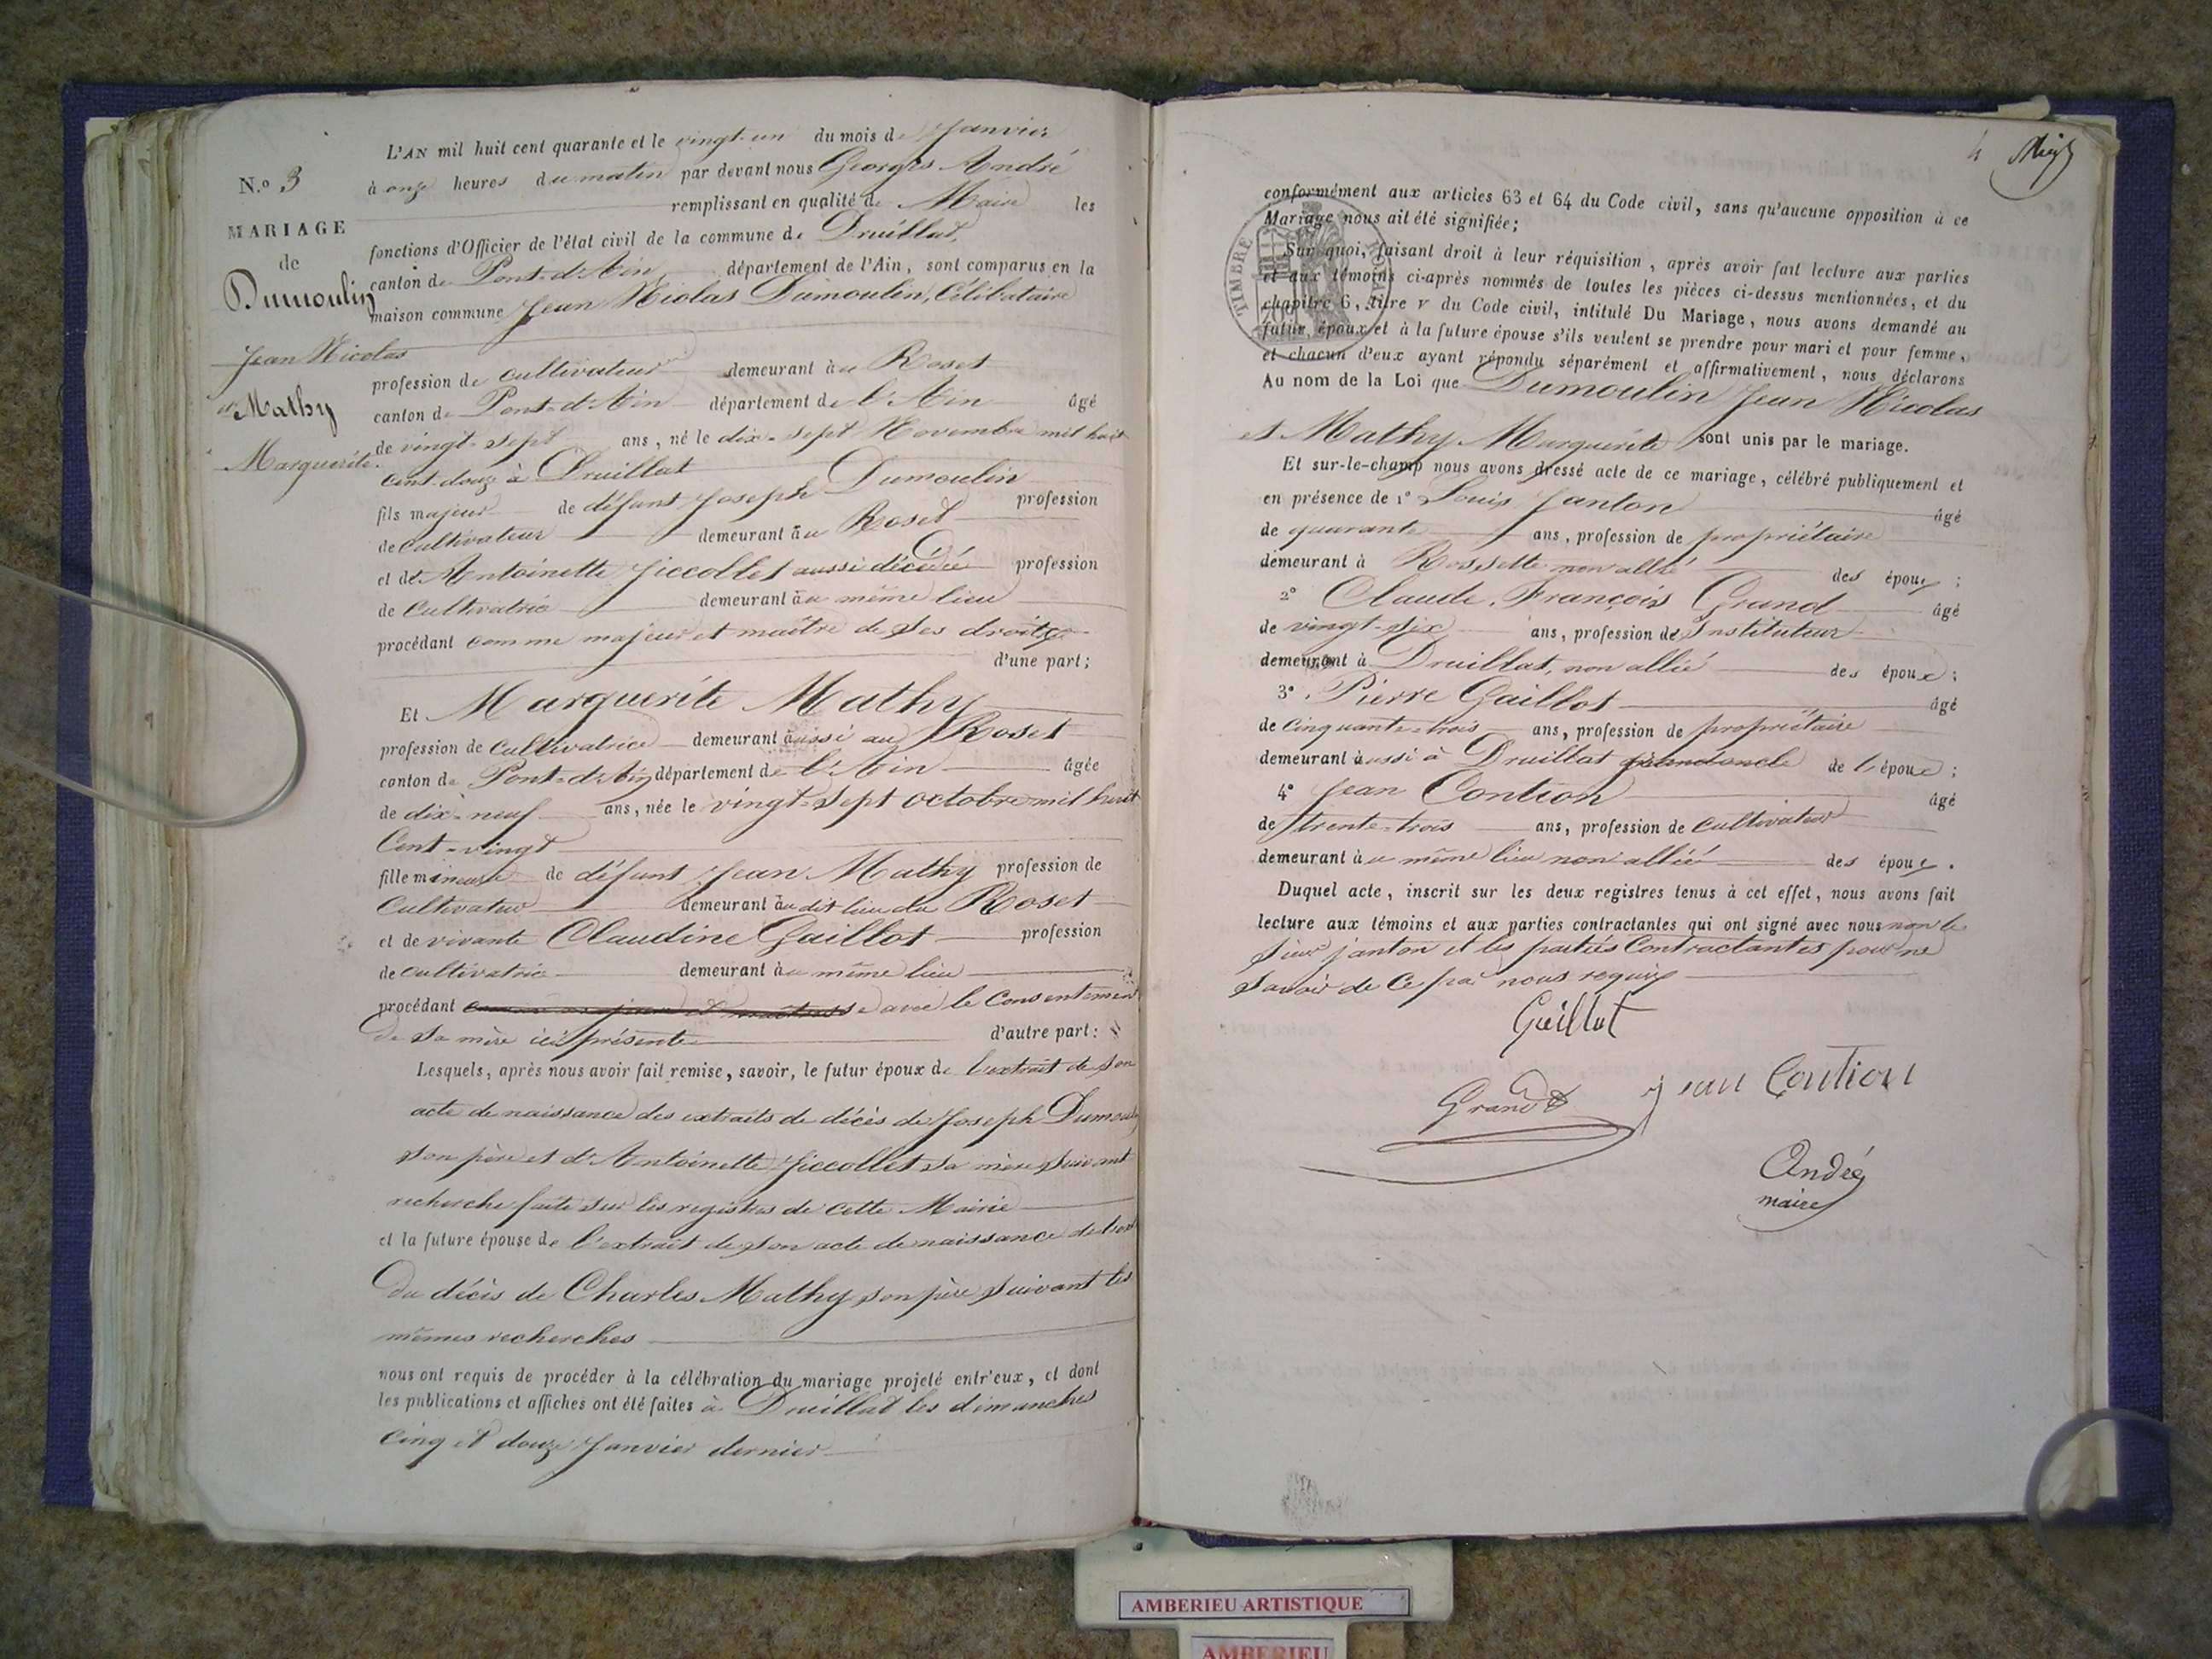 N.º 3
MARIAGE
de
Dumoulin
Jean Nicolas
et Mathy
Marguerite.
L'AN mil huit cent quarante et le vingt-un du mois de Janvier
à onze heures du matin par devant nous Georges André
remplissant en qualité de Maire les
fonctions d'Officier de l'état civil de la commune de Druillat,
canton de Pont-d'Ain, département de l'Ain, sont comparus en la
maison commune Jean Nicolas Dumoulin, Célibataire
profession de cultivateur demeurant au Roset
canton de Pont-d'Ain département de l'Ain âgé
de vingt-sept ans, né le dix-sept Novembre mil huit
cent-douze à Druillat
fils majeur de défunt Joseph Dumoulin profession
de cultivateur demeurant au Roset
et de Antoinette Jiccollet aussi décédée profession
de Cultivatrice demeurant au même lieu
procédant comme majeur et maître de ses droits
d'une part;
Et Marguerite Mathy
profession de Cultivatrice demeurant aussi au Roset
canton de Pont-d'Ain département de l'Ain âgée
de dix-neuf ans, née le vingt-sept octobre mil huit
Cent-vingt
fille mineure de défunt Jean Mathy profession de
Cultivateur demeurant au dit lieu du Roset
et de vivante Claudine Gaillot profession
de cultivatrice demeurant au même lieu
procédant comme majeure et maitresse avec le Consentement
de sa mère ici présente d'autre part:
Lesquels, après nous avoir fait remise, savoir, le futur époux de l'extrait de son
acte de naissance des extraits de décès de Joseph Dumoulin
son père et d'Antoinette Jiccollet sa mère suivant
recherche faite sur les registres de cette Mairie
et la future épouse de l'extrait de son acte de naissance de
du décès de Charles Mathy son père suivant les
mêmes recherches
nous ont requis de procéder à la célébration du mariage projeté entr'eux, et dont
les publications et affiches ont été faites à Druillat les dimanches
cinq et douze Janvier dernier
4
conformément aux articles 63 et 64 du Code civil, sans qu'aucune opposition à ce
Mariage nous ait été signifiée;
TIMBRE ROYAL
Sur quoi, faisant droit à leur réquisition, après avoir fait lecture aux parties
et aux témoins ci-après nommés de toutes les pièces ci-dessus mentionnées, et du
chapitre 6, titre v du Code civil, intitulé Du Mariage, nous avons demandé au
futur époux et à la future épouse s'ils veulent se prendre pour mari et pour femme,
et chacun d'eux ayant répondu séparément et affirmativement, nous déclarons
Au nom de la Loi que Dumoulin Jean Nicolas
et Mathy Marguerite sont unis par le mariage.
Et sur-le-champ nous avons dressé acte de ce mariage, célébré publiquement et
en présence de 1º Louis Janton âgé
de quarante ans, profession de propriétaire
demeurant à Rossette non allié des époux;
2º Claude François Grand âgé
de vingt-six ans, profession de Instituteur
demeurant à Druillat, non allié des époux;
3º Pierre Gaillot âgé
de cinquante-trois ans, profession de propriétaire
demeurant aussi à Druillat grand oncle de l'épouse;
4º Jean Contion âgé
de trente-trois ans, profession de cultivateur
demeurant au même lieu non allié des époux.
Duquel acte, inscrit sur les deux registres tenus à cet effet, nous avons fait
lecture aux témoins et aux parties contractantes qui ont signé avec nous non le
sieur janton et les parties Contractantes pour ne
savoir de ce par nous requis
Gaillot
Grand jean Contion
André
maire
AMBERIEU ARTISTIQUE
AMBERIEU